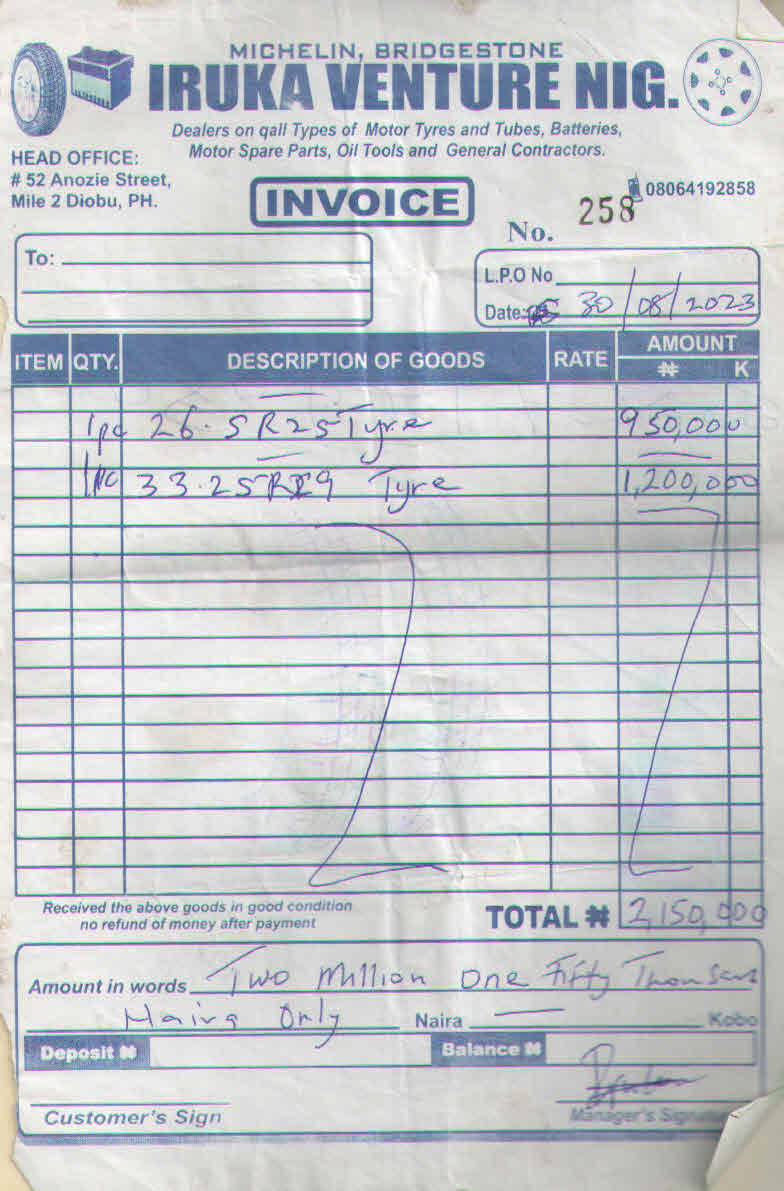 MICHELIN, BRIDGESTONE
IRUKA VENTURE NIG.
Dealers on qall Types of Motor Tyres and Tubes, Batteries,
Motor Spare Parts, Oil Tools and General Contractors.
HEAD OFFICE:
# 52 Anozie Street,
Mile 2 Diobu, PH.
08064192858
INVOICE
No. 258
To:
L.P.O No
Date: 30/08/2023
ITEM QTY. DESCRIPTION OF GOODS RATE AMOUNT
₦ K
1pc 26.5R25 Tyre 950,000
1pc 33.25R29 Tyre 1,200,000
Received the above goods in good condition
no refund of money after payment
TOTAL ₦ 2,150,000
Amount in words Two Million One Fifty Thousand
Naira Only Naira Kobo
Deposit ₦ Balance ₦
Customer's Sign Manager's Signature